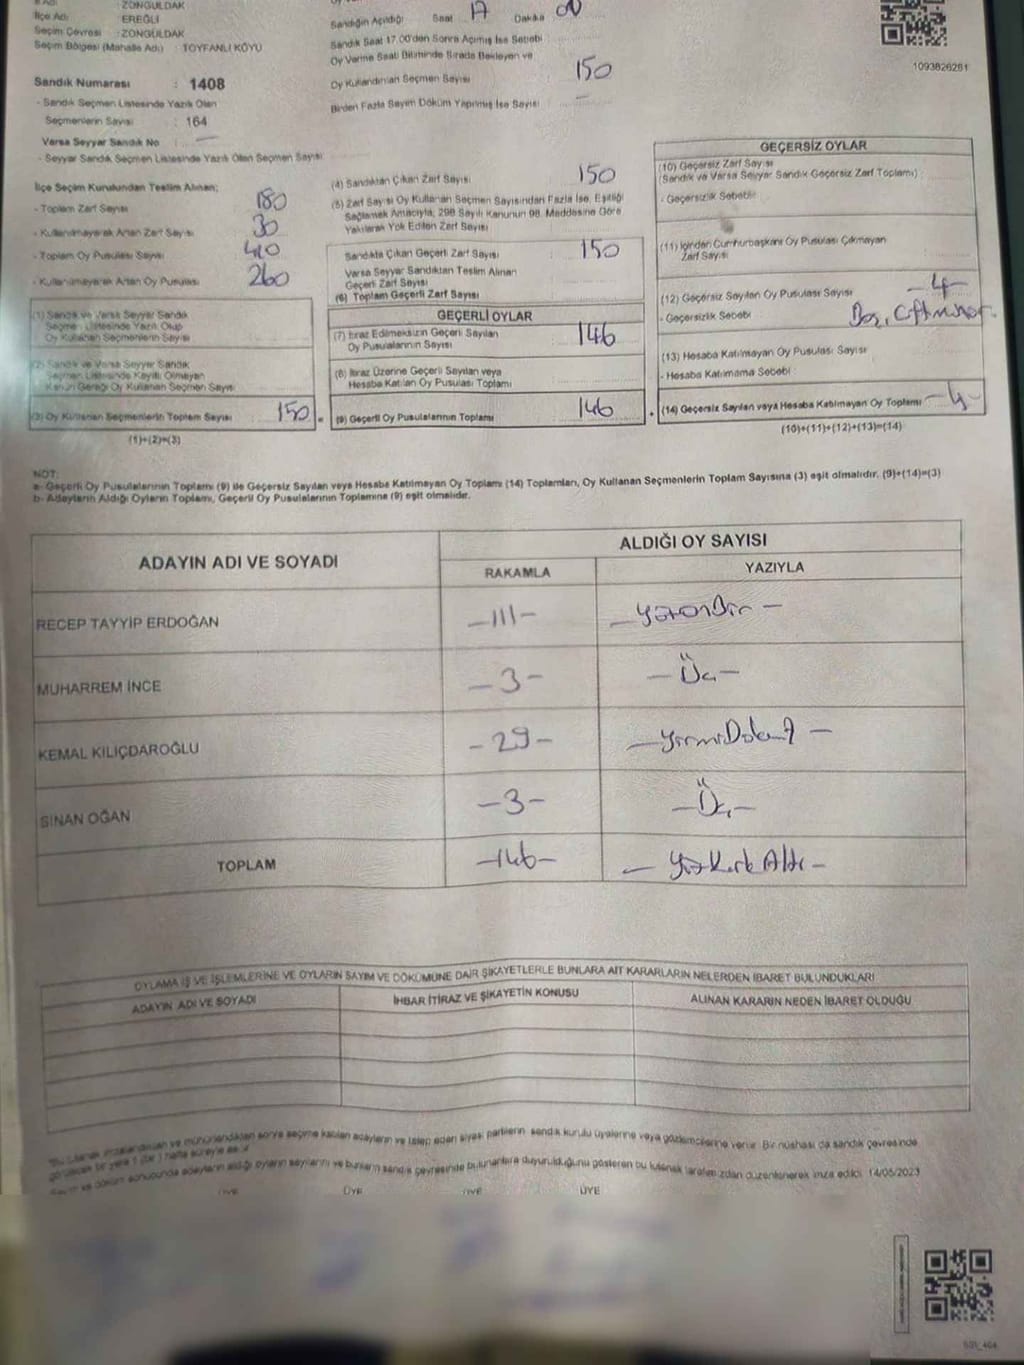 ZONGULDAK
İlçe Adı : EREĞLİ
Seçim Çevresi : ZONGULDAK
Seçim Bölgesi (Mahalle Adı) : TOYFANLI KÖYÜ
Sandık Numarası : 1408
- Sandık Seçmen Listesinde Yazılı Olan
Seçmenlerin Sayısı : 164
Varsa Seyyar Sandık No
- Seyyar Sandık Seçmen Listesinde Yazılı Olan Seçmen Sayısı
İlçe Seçim Kurulundan Teslim Alınan;
- Toplam Zarf Sayısı 180
- Kullanılmayarak Artan Zarf Sayısı 30
- Toplam Oy Pusulası Sayısı 410
- Kullanılmayarak Artan Oy Pusulası 260
(1) Sandık ve Varsa Seyyar Sandık
Seçmen Listesinde Yazılı Olup
Oy Kullanan Seçmenlerin Sayısı
(2) Sandık ve Varsa Seyyar Sandık
Seçmen Listesinde Kayıtlı Olmayan
Kanun Gereği Oy Kullanan Seçmen Sayısı
(3) Oy Kullanan Seçmenlerin Toplam Sayısı 150 =
(1)+(2)=(3)
Sandığın Açıldığı Saat 17 Dakika 00
Sandık Saat 17.00'den Sonra Açılmış İse Sebebi :
Oy Verme Saati Bitiminde Sırada Bekleyen ve
Oy Kullandırılan Seçmen Sayısı : 150
Birden Fazla Sayım Döküm Yapılmış İse Sayısı :
(4) Sandıktan Çıkan Zarf Sayısı : 150
(5) Zarf Sayısı Oy Kullanan Seçmen Sayısından Fazla İse, Eşitliği
Sağlamak Amacıyla, 298 Sayılı Kanunun 98. Maddesine Göre
Yakılarak Yok Edilen Zarf Sayısı
Sandıkta Çıkan Geçerli Zarf Sayısı : 150
Varsa Seyyar Sandıktan Teslim Alınan
Geçerli Zarf Sayısı
(6) Toplam Geçerli Zarf Sayısı
GEÇERLİ OYLAR
(7) İtiraz Edilmeksizin Geçerli Sayılan
Oy Pusulalarının Sayısı 146
(8) İtiraz Üzerine Geçerli Sayılan veya
Hesaba Katılan Oy Pusulası Toplamı
(9) Geçerli Oy Pusulalarının Toplamı 146 +
1093826261
GEÇERSİZ OYLAR
(10) Geçersiz Zarf Sayısı
(Sandık ve Varsa Seyyar Sandık Geçersiz Zarf Toplamı) :
- Geçersizlik Sebebi:
(11) İçinden Cumhurbaşkanı Oy Pusulası Çıkmayan
Zarf Sayısı
(12) Geçersiz Sayılan Oy Pusulası Sayısı - 4 -
- Geçersizlik Sebebi : Boş,
(13) Hesaba Katılmayan Oy Pusulası Sayısı
- Hesaba Katılmama Sebebi :
(14) Geçersiz Sayılan veya Hesaba Katılmayan Oy Toplamı - 4 -
(10)+(11)+(12)+(13)=(14)
NOT:
a- Geçerli Oy Pusulalarının Toplamı (9) ile Geçersiz Sayılan veya Hesaba Katılmayan Oy Toplamı (14) Toplamları, Oy Kullanan Seçmenlerin Toplam Sayısına (3) eşit olmalıdır. (9)+(14)=(3)
b- Adayların Aldığı Oyların Toplamı, Geçerli Oy Pusulalarının Toplamına (9) eşit olmalıdır.
ADAYIN ADI VE SOYADI
ALDIĞI OY SAYISI
RAKAMLA YAZIYLA
RECEP TAYYİP ERDOĞAN - 111 - - YüzOnBir -
MUHARREM İNCE - 3 - - Üç -
KEMAL KILIÇDAROĞLU - 29 - - YirmiDokuz -
SİNAN OĞAN - 3 - - Üç -
TOPLAM - 146 - - YüzKırkAltı -
OYLAMA İŞ VE İŞLEMLERİNE VE OYLARIN SAYIM VE DÖKÜMÜNE DAİR ŞİKAYETLERLE BUNLARA AİT KARARLARIN NELERDEN İBARET BULUNDUKLARI
ADAYIN ADI VE SOYADI İHBAR İTİRAZ VE ŞİKAYETİN KONUSU ALINAN KARARIN NEDEN İBARET OLDUĞU
imzalandıktan ve mühürlendikten sonra seçime katılan adayların ve talep eden siyasi partilerin sandık kurulu üyelerine veya gözlemcilerine verilir. Bir nüshası da sandık çevresinde
görülecek bir yere 1 (bir) hafta süreyle asılır
Sayım ve döküm sonucunda adayların aldığı oyların sayılarını ve bunların sandık çevresinde bulunanlara duyurulduğunu gösteren bu tutanak tarafımızdan düzenlenerek imza edildi. 14/05/2023
ÜYE ÜYE ÜYE ÜYE